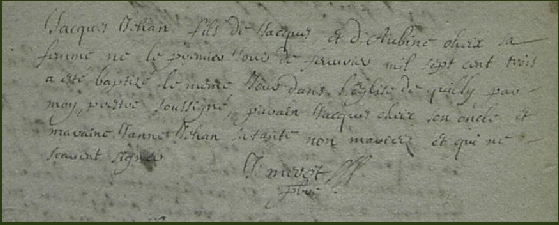 Jacques Jehan fils de Jacques et d'Aubine cherx sa
famme né le premier Jour de janvier mil sept cent trois
a esté baptizé le même Jour dans l'église de quilly par
moy prestre soussigné parain Jacques cherx son oncle et
maraine Janne Jehan sa tante non mariez et qui ne
scavent signer